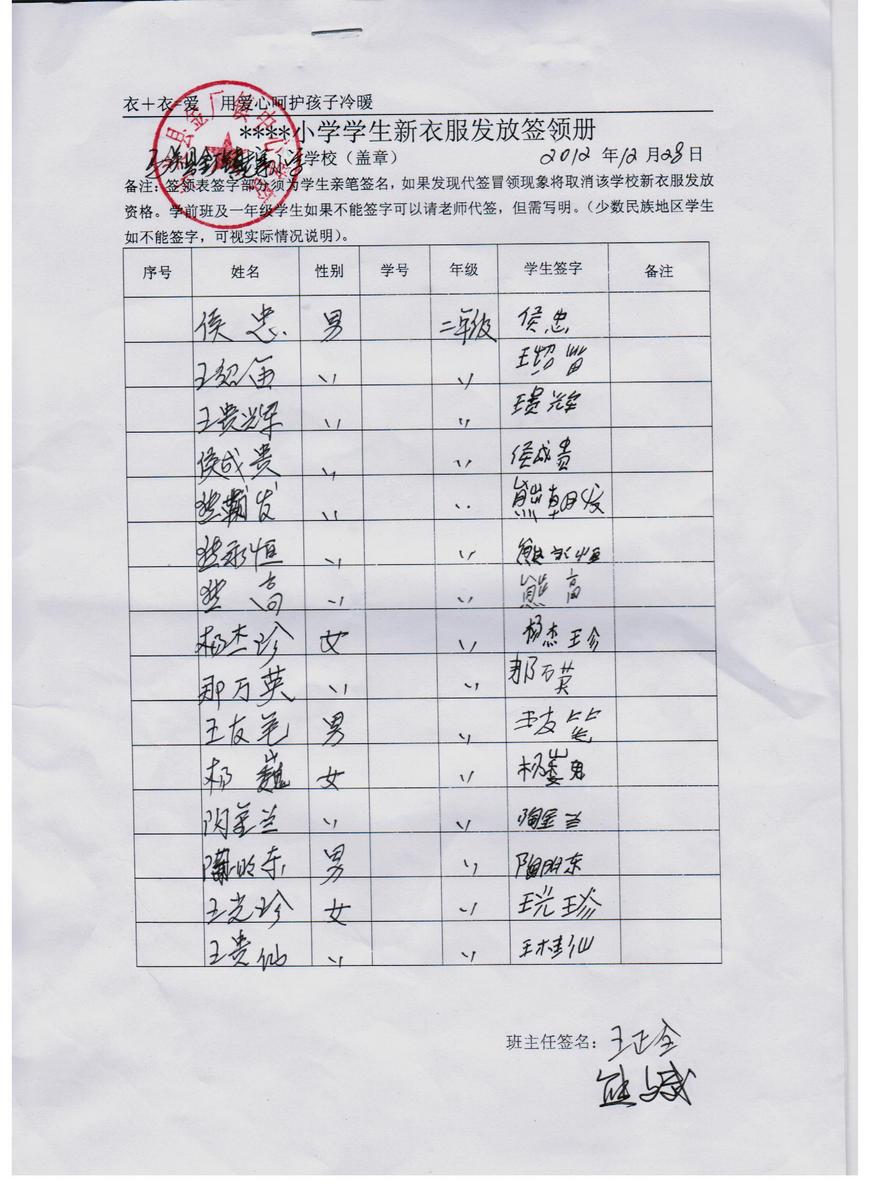 衣+衣=爱 用爱心呵护孩子冷暖
****小学学生新衣服发放签领册
县金厂镇中心学校
学校（盖章） 2012年12月28日
备注：签领表签字部分须为学生亲笔签名，如果发现代签冒领现象将取消该学校新衣服发放
资格。学前班及一年级学生如果不能签字可以请老师代签，但需写明。（少数民族地区学生
如不能签字，可视实际情况说明）。
序号 姓名 性别 学号 年级 学生签字 备注
侯忠 男 二年级 侯忠
王 〃 〃 王
王贵辉 〃 〃 王贵辉
侯成贵 〃 〃 侯成贵
熊朝发 〃 〃 熊朝发
熊永恒 〃 〃 熊永恒
熊高 〃 〃 熊高
杨杰珍 女 〃 杨杰珍
那万英 〃 〃 那万英
王友笔 男 〃 王友笔
杨巍 女 〃 杨
陶金兰 〃 〃 陶金兰
陶明东 男 〃 陶明东
王光珍 女 〃 王光珍
王贵仙 〃 〃 王桂仙
班主任签名：王正全
熊斌